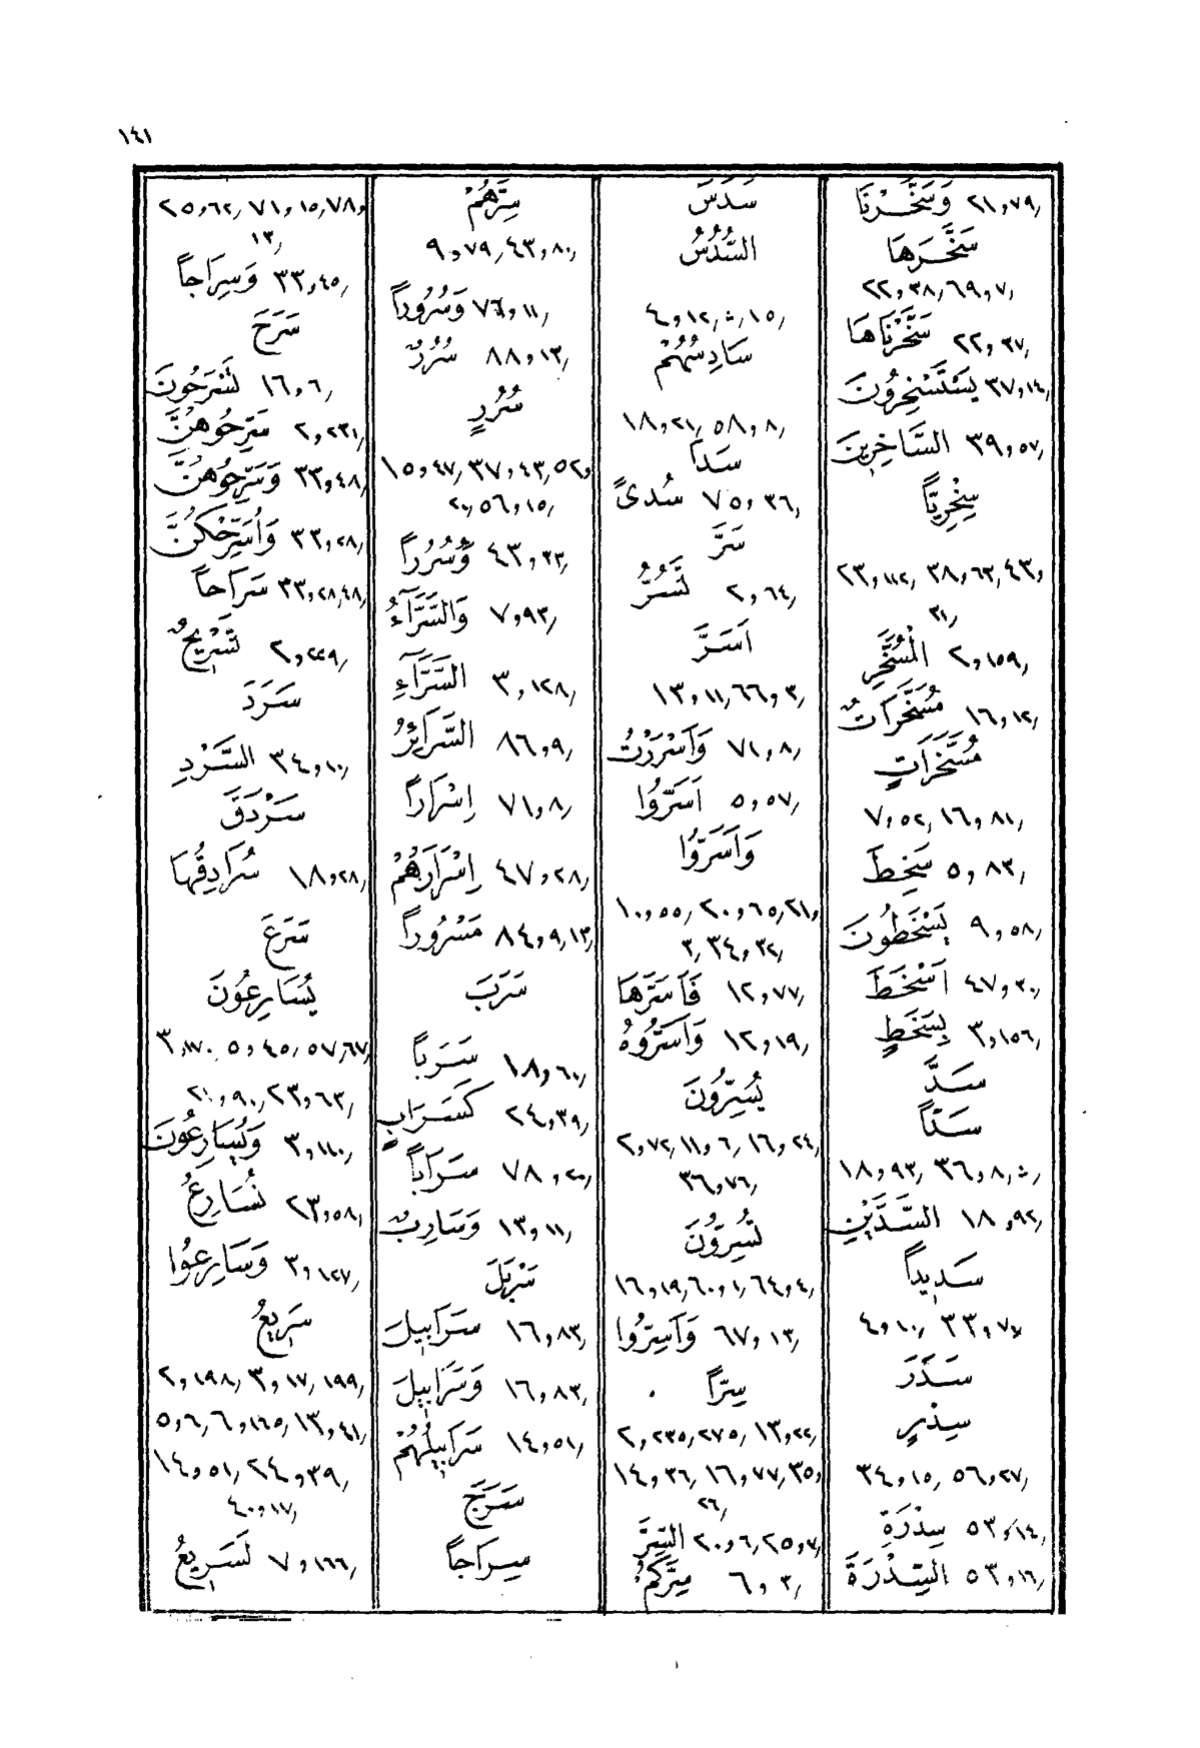 ١٤١
٢١,٧٩, وَسَخَّرْنَا
سَخَّرَهَا
٢٢,٣٨, ٦٩,٧,
٢٢,٣٧, سَخَّرْنَاهَا
٣٧,١٤, يَسْتَسْخِرُونَ
٣٩,٥٧, السَّاخِرِينَ
سِخْرِيًّا
٢٣,١١٢, ٣٨,٦٣, ٤٣,
٣١,
٢,١٥٩, الْمُسَخَّرِ
١٦,١٢, مُسَخَّرَاتٌ
مُسَخَّرَاتٍ
٧,٥٢, ١٦,٨١,
٥,٨٣, سَخِطَ
٩,٥٨, يَسْخَطُونَ
٤٧,٣٠, اَسْخَطَ
٣,١٥٦, بِسَخَطٍ
سَدَّ
سَدًّا
١٨,٩٣, ٣٦,٨,
١٨,٩٢, السَّدَّيْنِ
سَدِيداً
٤,١٠, ٣٣,٧٠
سَدَرَ
سِدْرٍ
٣٤,١٥, ٥٦,٢٧,
٥٣,١٤, سِدْرَةِ
٥٣,١٦, السِّدْرَةَ
سَدَسَ
السُّدُسُ
٤,١٢, ١٥,
سَادِسُهُمْ
١٨,٢١, ٥٨,٨,
سَدَا
٧٥,٣٦, سُدىً
سَرَّ
٢,٦٤, تَسُرُّ
اَسَرَّ
١٣,١١, ٦٦,٣,
٧١,٨, وَاَسْرَرْتُ
٥,٥٧, اَسَرُّوا
وَاَسَرُّوا
١٠,٥٥, ٢٠,٦٥, ٢١,
٣, ٣٤,٣٢,
١٢,٧٧, فَاَسَرَّهَا
١٢,١٩, وَاَسَرُّوهُ
يُسِرُّونَ
٢,٧٢, ١١,٦, ١٦,٢٤,
٣٦,٧٦,
تُسِرُّونَ
١٦,١٩, ٦٠,١, ٦٤,٤,
٦٧,١٣, وَاَسِرُّوا
سِرًّا
٢,٢٣٥, ٢٧٥, ١٣,٢٢,
١٤,٣٦, ١٦,٧٧, ٣٥,
٢٦,
٢٠,٦, ٢٥,٧, السِّرَّ
٦,٣, سِرَّكُمْ
سِرَّهُمْ
٩,٧٩, ٤٣,٨٠,
٧٦,١١, وَسُرُوراً
٨٨,١٣, سُرُرٌ
سُرُرٍ
١٥,٤٧, ٣٧,٤٣, ٥٢,
٢٠, ٥٦,١٥,
٤٣,٣٣, وَسُرُراً
٧,٩٣, وَالسَّرَّآءُ
٣,١٢٨, السَّرَّآءِ
٨٦,٩, السَّرَائِرُ
٧١,٨, اِسْرَاراً
٤٧,٢٨, اِسْرَارَهُمْ
٨٤,٩, ١٣, مَسْرُوراً
سَرَبَ
١٨,٦٠, سَرَباً
٢٤,٣٩, كَسَرَابٍ
٧٨,٢٠, سَرَاباً
١٣,١١, وَسَارِبٌ
سَرْبَلَ
١٦,٨٣, سَرَابِيلَ
١٦,٨٣, وَسَرَابِيلَ
١٤,٥١, سَرَابِيلُهُمْ
سَرَجَ
سِرَاجاً
٢٥,٦٢, ٧١,١٥, ٧٨,
١٣,
٣٣,٤٥, وَسِرَاجاً
سَرَحَ
١٦,٦, تَسْرَحُونَ
٢,٢٣١, سَرِّحُوهُنَّ
٣٣,٤٨, وَسَرِّحُوهُنَّ
٣٣,٢٨, وَاُسَرِّحْكُنَّ
٣٣,٢٨,٤٨, سَرَاحاً
٢,٢٢٩, تَسْرِيحٌ
سَرَدَ
٣٤,١٠, السَّرْدِ
سَرْدَقَ
١٨,٢٨, سُرَادِقُهَا
سَرَعَ
يُسَارِعُونَ
٣,١٧٠, ٥,٤٥, ٥٧,٦٧,
٢١,٩٠, ٢٣,٦٣,
٣,١١٠, وَيُسَارِعُونَ
٢٣,٥٨, نُسَارِعُ
٣,١٢٧, وَسَارِعُوا
سَرِيعُ
٢,١٩٨, ٣,١٧, ١٩٩,
٥,٦, ٦,١٦٥, ١٣,٤١,
١٤,٥١, ٢٤,٣٩,
٤٠,١٧,
٧,١٦٦, لَسَرِيعُ